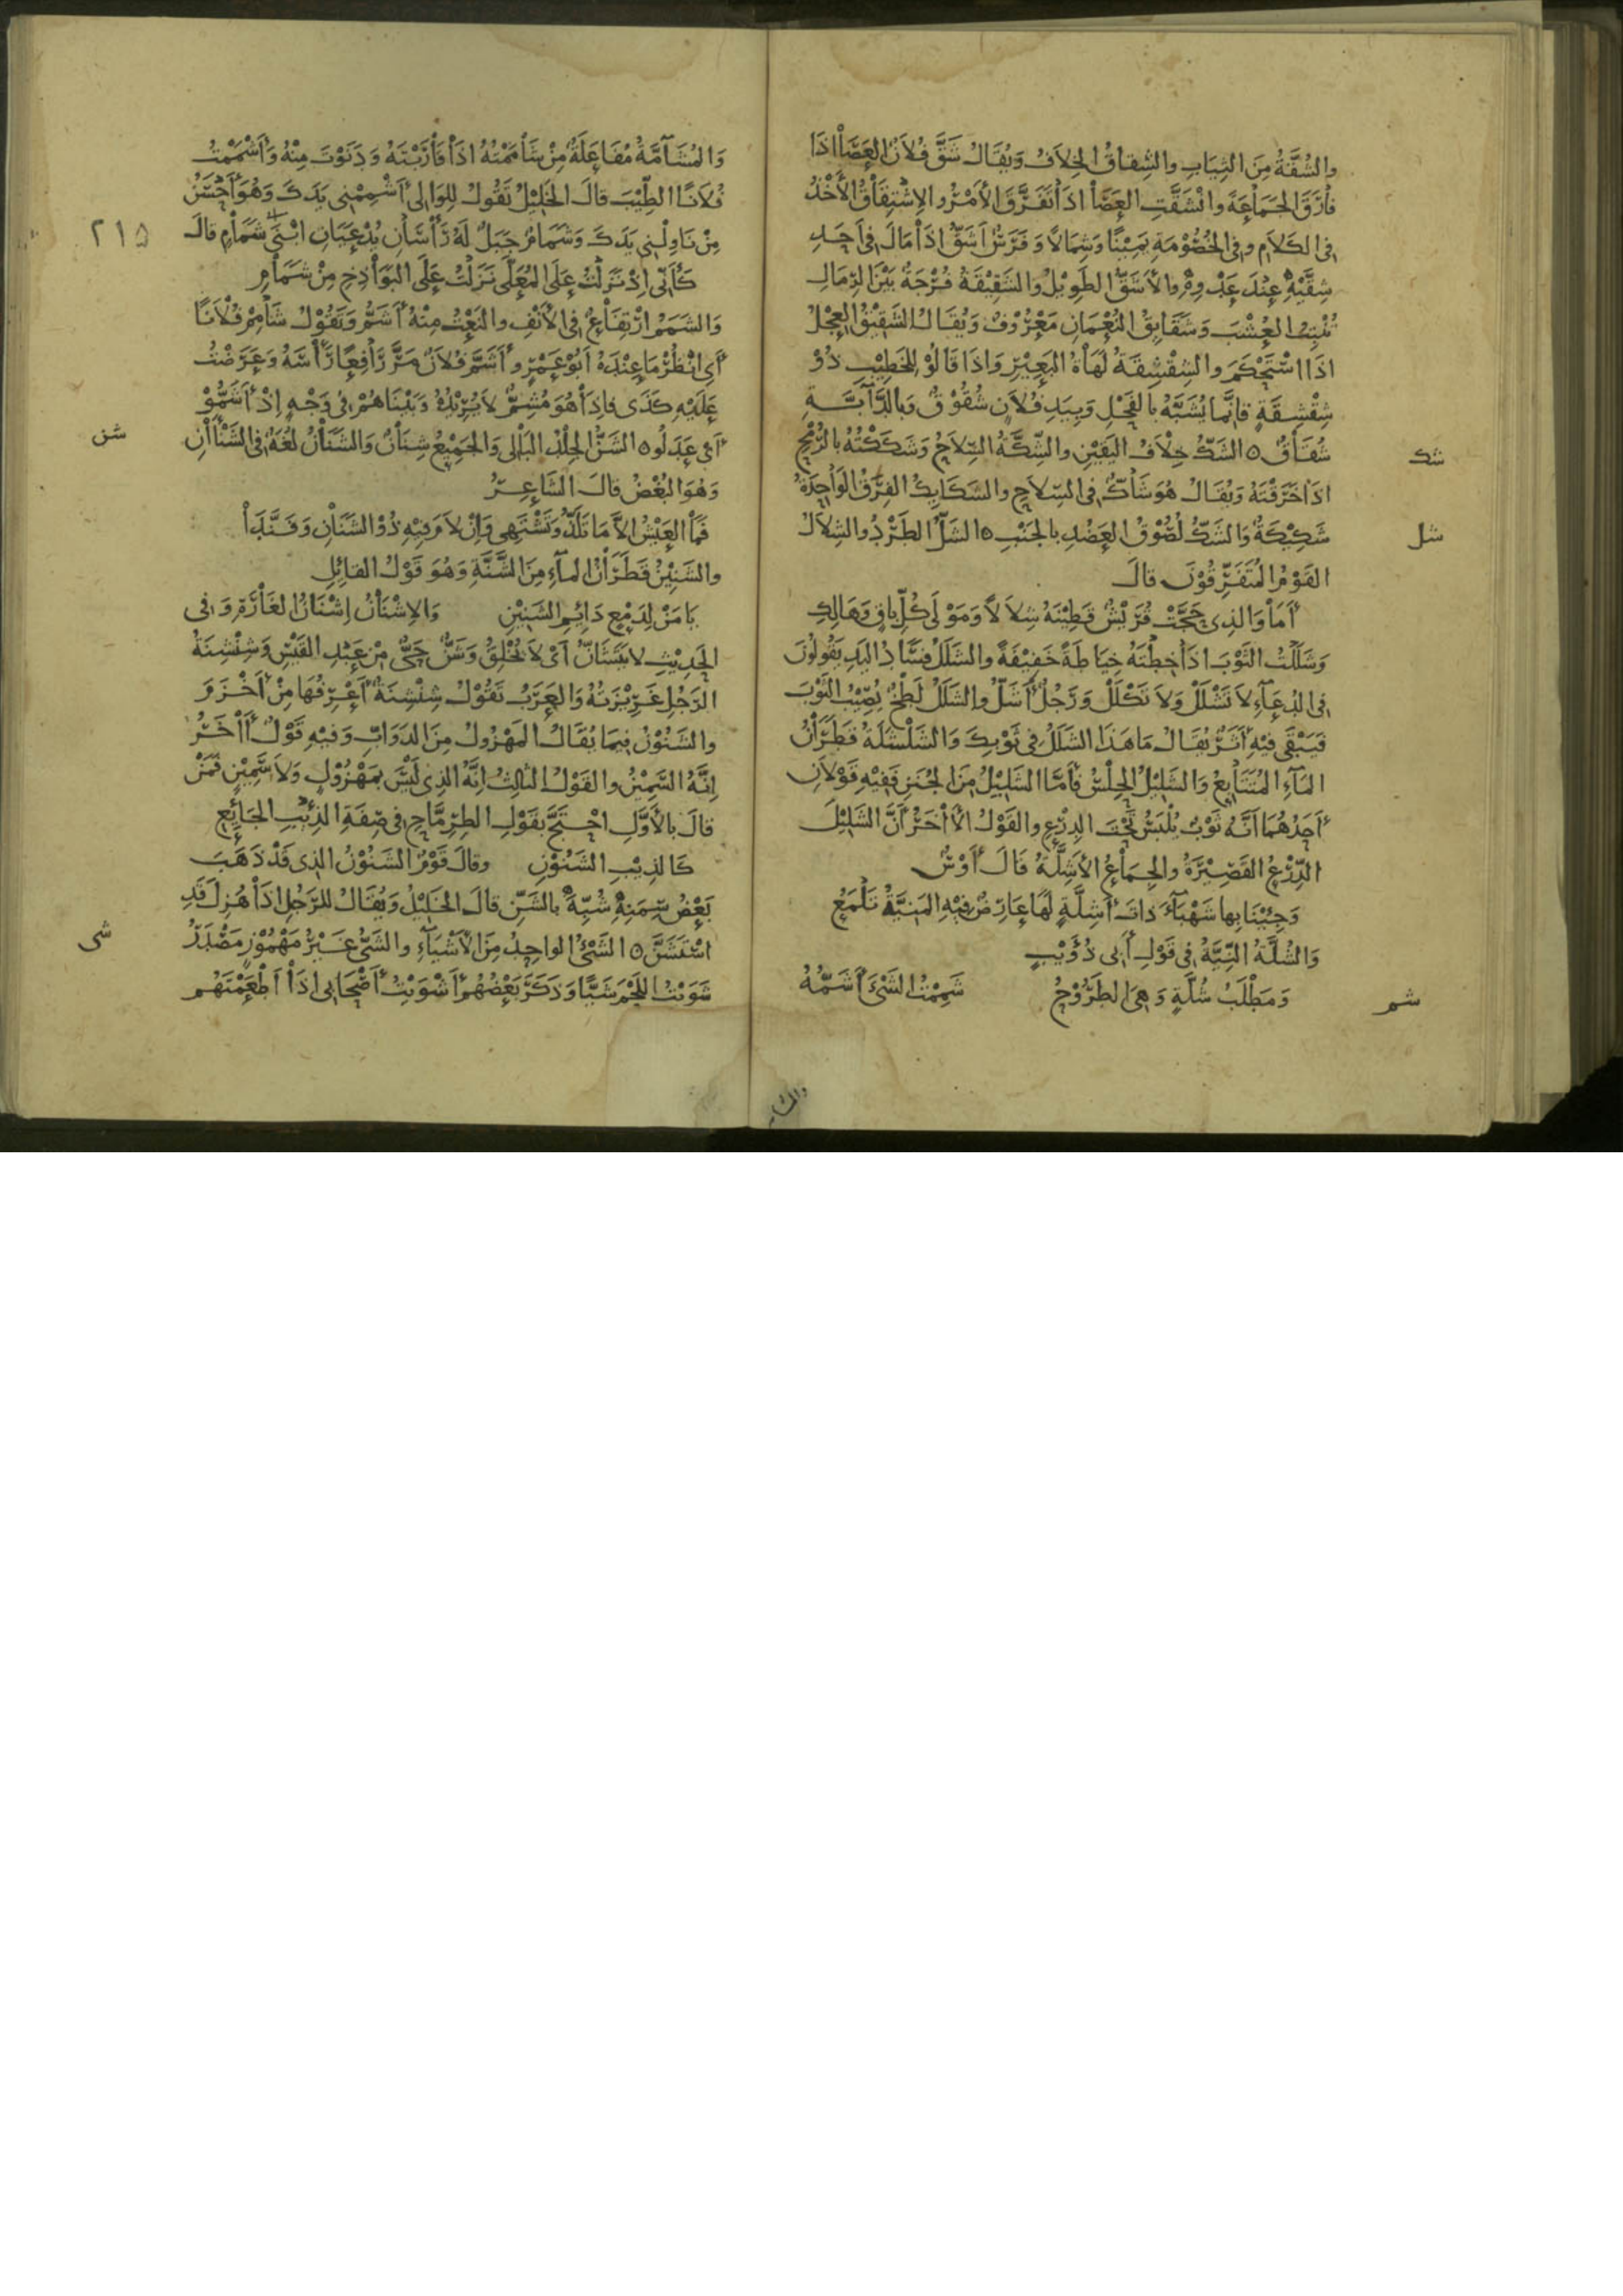 والشُقَّةُ مِنَ الثِيَابِ والشِقاقُ الخِلافُ وَيُقَالُ شَقَّ فُلَانُ العَصَا اذَا
فَارَقَ الجَمَاعَةَ وانْشَقَّتِ العَصَا اذَا تَفَرَّقَ الأَمْرُ والاِشْتِقَاقُ الأَخْذُ
فِى الكَلَامِ وفِى الخُصُوْمَةِ يَمِيْنًا وَشِمَالًا وَفَرَسٌ أَشَقُّ اذَا مَالَ فِى أَحَدِ
شِقَّيْهِ عِنْدَ عَدْوِهِ والأَشَقُّ الطَوِيْلُ والشَقِيْقَةُ فُرْجَةٌ بَيْنَ الرِمَالِ
تُنْبِتُ العُشْبَ وَشَقَايِقُ النُعْمَانِ مَعْرُوْفٌ وَيُقَالُ الشَقِيْقُ العِجْلُ
اذَا اسْتَحْكَمَ والشِقْشِقَةُ لَهَاةُ البَعِيْرِ وَاذَا قَالُوْ للخَطِيْبِ ذُوْ
شِقْشِقَةٍ فَانَّما يُشَبَّهُ بالفَحْلِ وَبِيَدِ فُلَانٍ شُقُوْقٌ وَبالدَّآبَّةِ
شك
شُقَاقٌ ٥ الشَكُّ خِلَافُ اليَقِيْنِ والشِّكَّةُ السِّلَاحُ وَشَكَكْتُهُ بالرُمْحِ
اذَا خَرَقْتَهُ وَيُقَالُ هُوَ شَاكٌّ فِى السِّلَاحِ والشَكَايِكُ الفِرَقُ الوَاحِدَةُ
شل
شَكِيْكَةٌ وَالشَكُّ لُصُوْقُ العَضُدِ بالجَنْبِ ٥ الشَلُّ الطَرْدُ والشِلَالُ
القَوْمُ المُتَفَرِّقُوْنَ قالَ
أَمَا وَالذِى حَجَّتْ قُرَيْشٌ قَطِيْنَهُ شِلَالًا وَمَوْلَى كُلِّ باقٍ وَهَالِكِ
وَشَلَلْتُ الثَوْبَ اذَا خِطْتَهُ خِيَاطَةً خَفِيْفَةً والشَلَلُ فَسَادُ اليَدِ يَقُولُونَ
فِى الدُعَآءِ لَا تَشْلَلْ وَلَا تَكْلَلْ وَرَجُلٌ أَشَلُّ والشَلَلُ لَطْخٌ يُصِيْبُ الثَوْبَ
فَيَبْقَى فِيْهِ أَثَرٌ يُقَالُ مَا هَذَا الشَلَلُ فِى ثَوْبِكَ وَالشَلْشَلَةُ قَطَرَانُ
المَآءِ المُتَتَابِعُ وَالشَلِيْلُ الحِلْسُ فَأَمَّا الشَلِيْلُ مِنَ الجُنَنِ فَفِيْهِ قَوْلَانِ
أَحَدُهُمَا أَنَّهُ ثَوْبٌ يُلْبَسُ تَحْتَ الدِرْعِ والقَوْلُ الأَاخَرُ أَنَّ الشَلِيْلَ
الدِّرْعُ القَصِيْرَةُ والجِمَاعُ الأَشِلَّةُ قَالَ أَوْسٌ
وَجِيْنَا بِها شَهْبَآءَ ذاتَ أَشِلَّةٍ لَهَا عَارِضٌ فِيْهِ المَنِيَّةُ تَلْمَعُ
وَالشُلَّةُ النِيَّةُ فِى قَوْلِ أَبِى ذُؤَيْبٍ
شم
وَمَطْلَبُ شُلَّةٍ وَهِىَ الطَرُوْحُ شَمِمْتُ الشَىْءَ أَشَمُّهُ
والمشا
وَالمُشَآمَّةُ مُفَاعَلَةٌ مِنْ شَامَمْتُهُ اذَا قَارَبْتَهُ وَدَنَوْتَ مِنْهُ وَأَشْمَمْتُ
فُلَانًا الطِيْبَ قالَ الخَلِيْلُ تَقُولُ لِلوَالِى أَشْمِمْنِى يَدَكَ وَهُوَ أَحْسَنُ
٢١٥
مِنْ نَاوِلْنِى يَدَكَ وَشَمَامُ جَبَلٌ لَهُ رَأْسَانِ يُدْعَيَانِ ابْنَىْ شَمَامٍ قالَ
كَأَنِّى اذْ نَزَلْتُ عَلَى المُعَلَّى نَزَلْتُ عَلَى البَوَاذِخِ مِنْ شَمَامِ
وَالشَمَمُ ارْتِفَاعٌ فِى الأَنْفِ والنَعْتُ مِنْهُ أَشَمُّ وَتَقُوْلُ شَامِمْ فُلَانًا
أَىِ انْظُرْ مَا عِنْدَهُ أَبُوْ عَمْرٍو أَشَمَّ فُلَانٌ مَرَّ رَافِعًا رَأْسَهُ وَعَرَضْتُ
عَلَيْهِ كَذَى فاذَا هُوَ مُشِمٌّ لَا يُرِيْدُهُ وَبَيْنَاهُمْ فِى وَجْهٍ اذْ أَشَمُّوْ
شن
أَىْ عَدَلُو ٥ الشَنُّ الجِلْدُ البَالِى وَالجَمِيْعُ شِنَانٌ وَالشَنَانُ لُغَةٌ فِى الشَنْاانِ
وَهُوَ البُغْضُ قالَ الشَاعِرُ
فَمَا العَيْشُ الاَّ مَا تَلَذُّ وَتَشْتَهِى وَانْ لَامَ فِيْهِ ذُوْ الشَنَانِ وَفَنَّدَا
والشَنِيْنُ قَطَرَانُ المآءِ مِنَ الشَّنَّةِ وَهُوَ قَوْلُ القائِلِ
يَا مَنْ لِدَمْعٍ دَائِمِ الشَنِيْنِ وَالاِشْنَانُ إِشْنَانُ الغَارَةِ وَفِى
الحَدِيْثِ لا يَتَشَانُّ أَىْ لَا يُخْلِقُ وَشَنٌّ حَىٌّ مِنْ عَبْدِ القَيْسِ وَشِنْشِنَةُ
الرَجُلِ غَرِيْزَتُهُ وَالعَرَبُ تَقُوْلُ شِنْشِنَةٌ أَعْرِفُهَا مِنْ أَخْزَمَ
والشَنُوْنُ فِيمَا يُقَالُ المَهْزُولُ مِنَ الدَوَابِّ وَفِيْهِ قَوْلٌ أَاخَرُ
انَّهُ السَّمِيْنُ والقَوْلُ الثالِثُ انَّهُ الذِى لَيْسَ بِمَهْزُوْلٍ وَلَا سَمِيْنٍ فَمَنْ
قالَ بالأَوَّلِ احْتَجَّ بقَوْلِ الطِرِمَّاحِ فِى صِفَةِ الذِئْبِ الجَائِعِ
كَالذِيْبِ الشَنُوْنِ وقالَ قَوْمٌ الشَنُوْنُ الذِى قَدْ ذَهَبَ
بَعْضُ سِمَنِهِ شُبِّهَ بالشَنِّ قالَ الخَلِيْلُ وَيُقَالُ للرَجُلِ اذَا هُزِلَ قَدِ
شى
اسْتَشَنَّ ٥ الشَىْءُ الواحِدُ مِنَ الأَشْيَآءِ والشَىُّ غَيْرُ مَهْمُوْزٍ مَصْدَرُ
شَوَيْتُ اللَحْمَ شَيًّا وَذَكَرَ بَعْضُهُمْ أَشْوَيْتُ أَصْحَابِى اذَا أَطْعَمْتَهُم